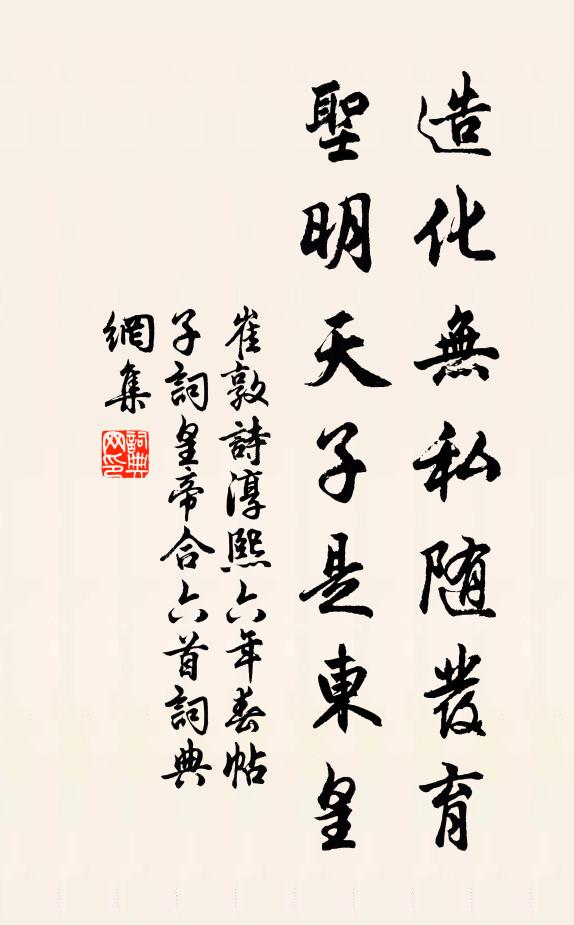 造化無私随發育
聖明天子是東皇
崔敦詩淳熙六年春帖
子詞皇帝合六首詞典
網集
詞典网印